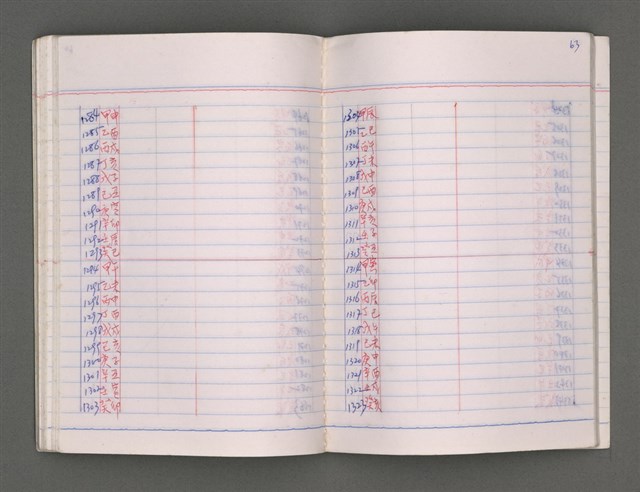 1284 甲申
1285 乙酉
1286 丙戌
1287 丁亥
1288 戊子
1289 己丑
1290 庚寅
1291 辛卯
1292 壬辰
1293 癸巳
1294 甲午
1295 乙未
1296 丙申
1297 丁酉
1298 戊戌
1299 己亥
1300 庚子
1301 辛丑
1302 壬寅
1303 癸卯
63
1304 甲辰
1305 乙巳
1306 丙午
1307 丁未
1308 戊申
1309 己酉
1310 庚戌
1311 辛亥
1312 壬子
1313 癸丑
1314 甲寅
1315 乙卯
1316 丙辰
1317 丁巳
1318 戊午
1319 己未
1320 庚申
1321 辛酉
1322 壬戌
1323 癸亥